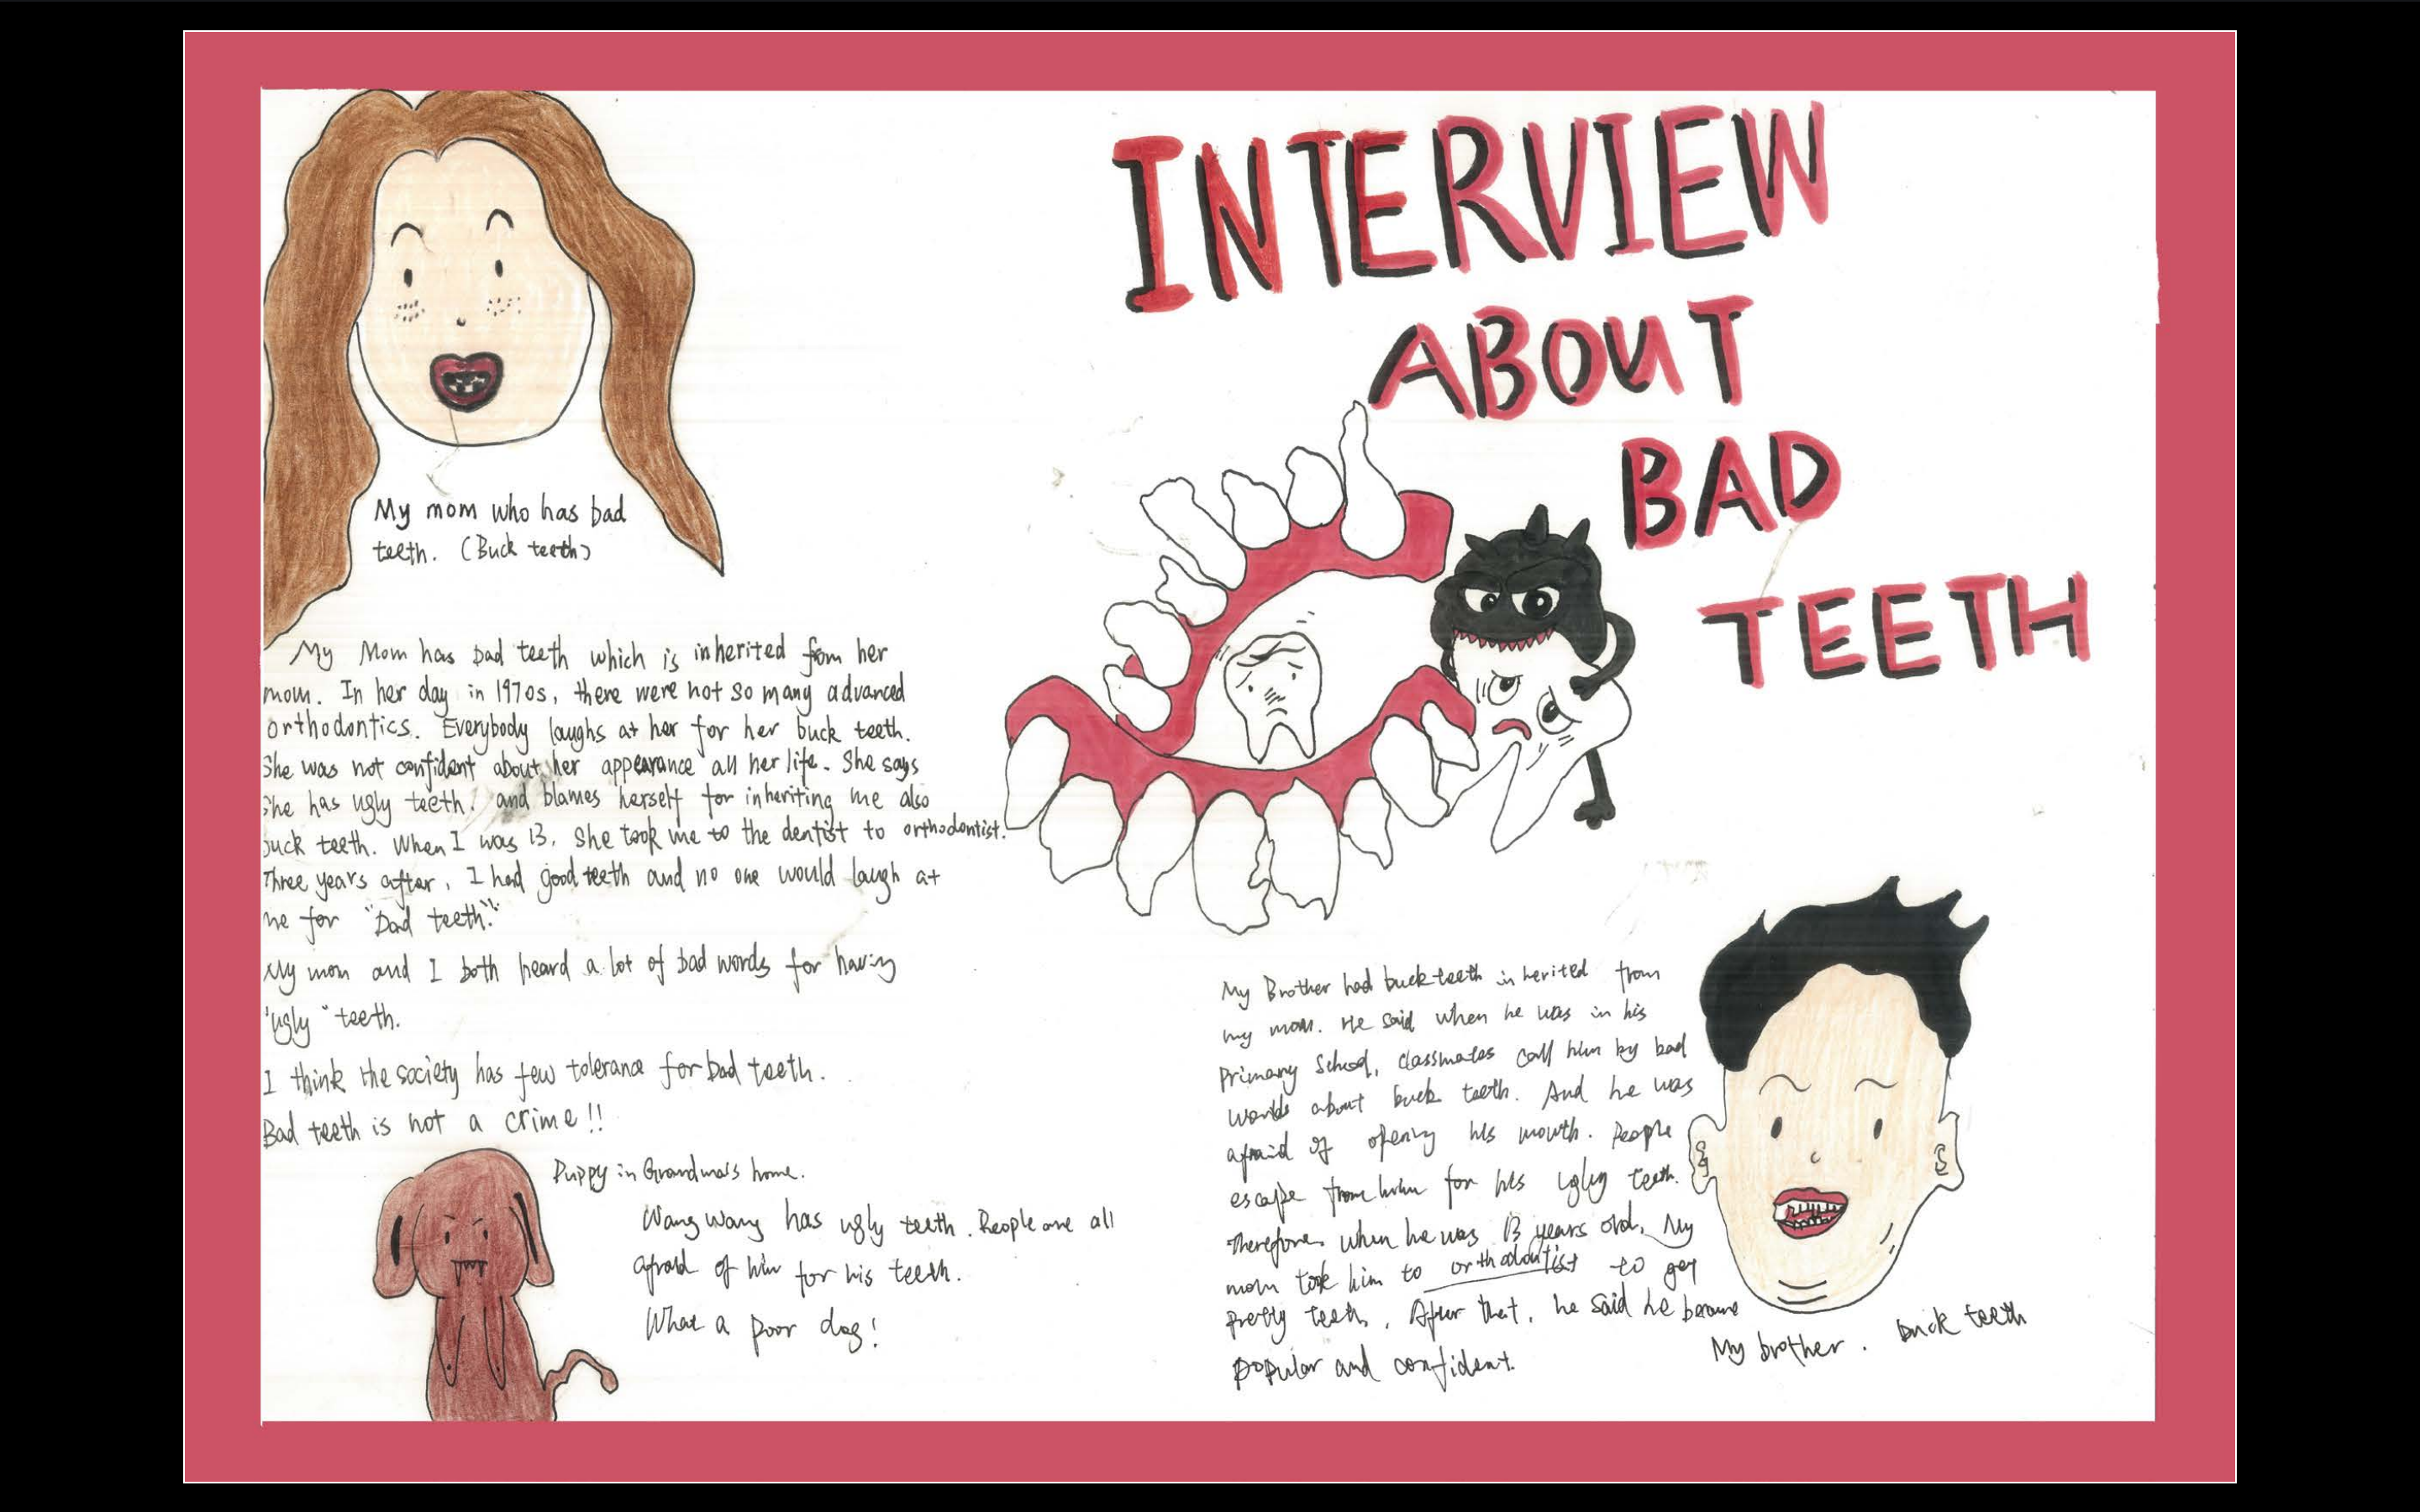 INTERVIEW
ABOUT
BAD
TEETH
My mom who has bad
teeth. (Buck teeth)
My Mom has bad teeth which is inherited from her
mom. In her day in 1970s, there were not so many advanced
orthodontics. Everybody laughs at her for her buck teeth.
She was not confident about her appearance all her life. She says
she has ugly teeth. and blames herself for inheriting me also
buck teeth. When I was 13, she took me to the dentist to orthodontist.
Three years after, I had good teeth and no one would laugh at
me for "bad teeth".
My mom and I both heard a lot of bad words for having
"ugly" teeth.
I think the society has few tolerance for bad teeth.
Bad teeth is not a crime!!
Puppy in Grandma's home.
Wang Wang has ugly teeth. People are all
afraid of him for his teeth.
What a poor dog!
My Brother had buck teeth inherited from
my mom. He said when he was in his
Primary School, classmates call him by bad
words about buck teeth. And he was
afraid of opening his mouth. People
escape from him for his ugly teeth.
Therefore, when he was 13 years old, My
mom took him to orthodontist to get
pretty teeth. After that, he said he became
popular and confident.
My brother. buck teeth